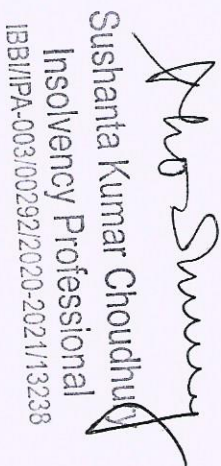 Sushanta Kumar Choudhury
Insolvency Professional
IBBI/IPA-003/00292/2020-2021/13238